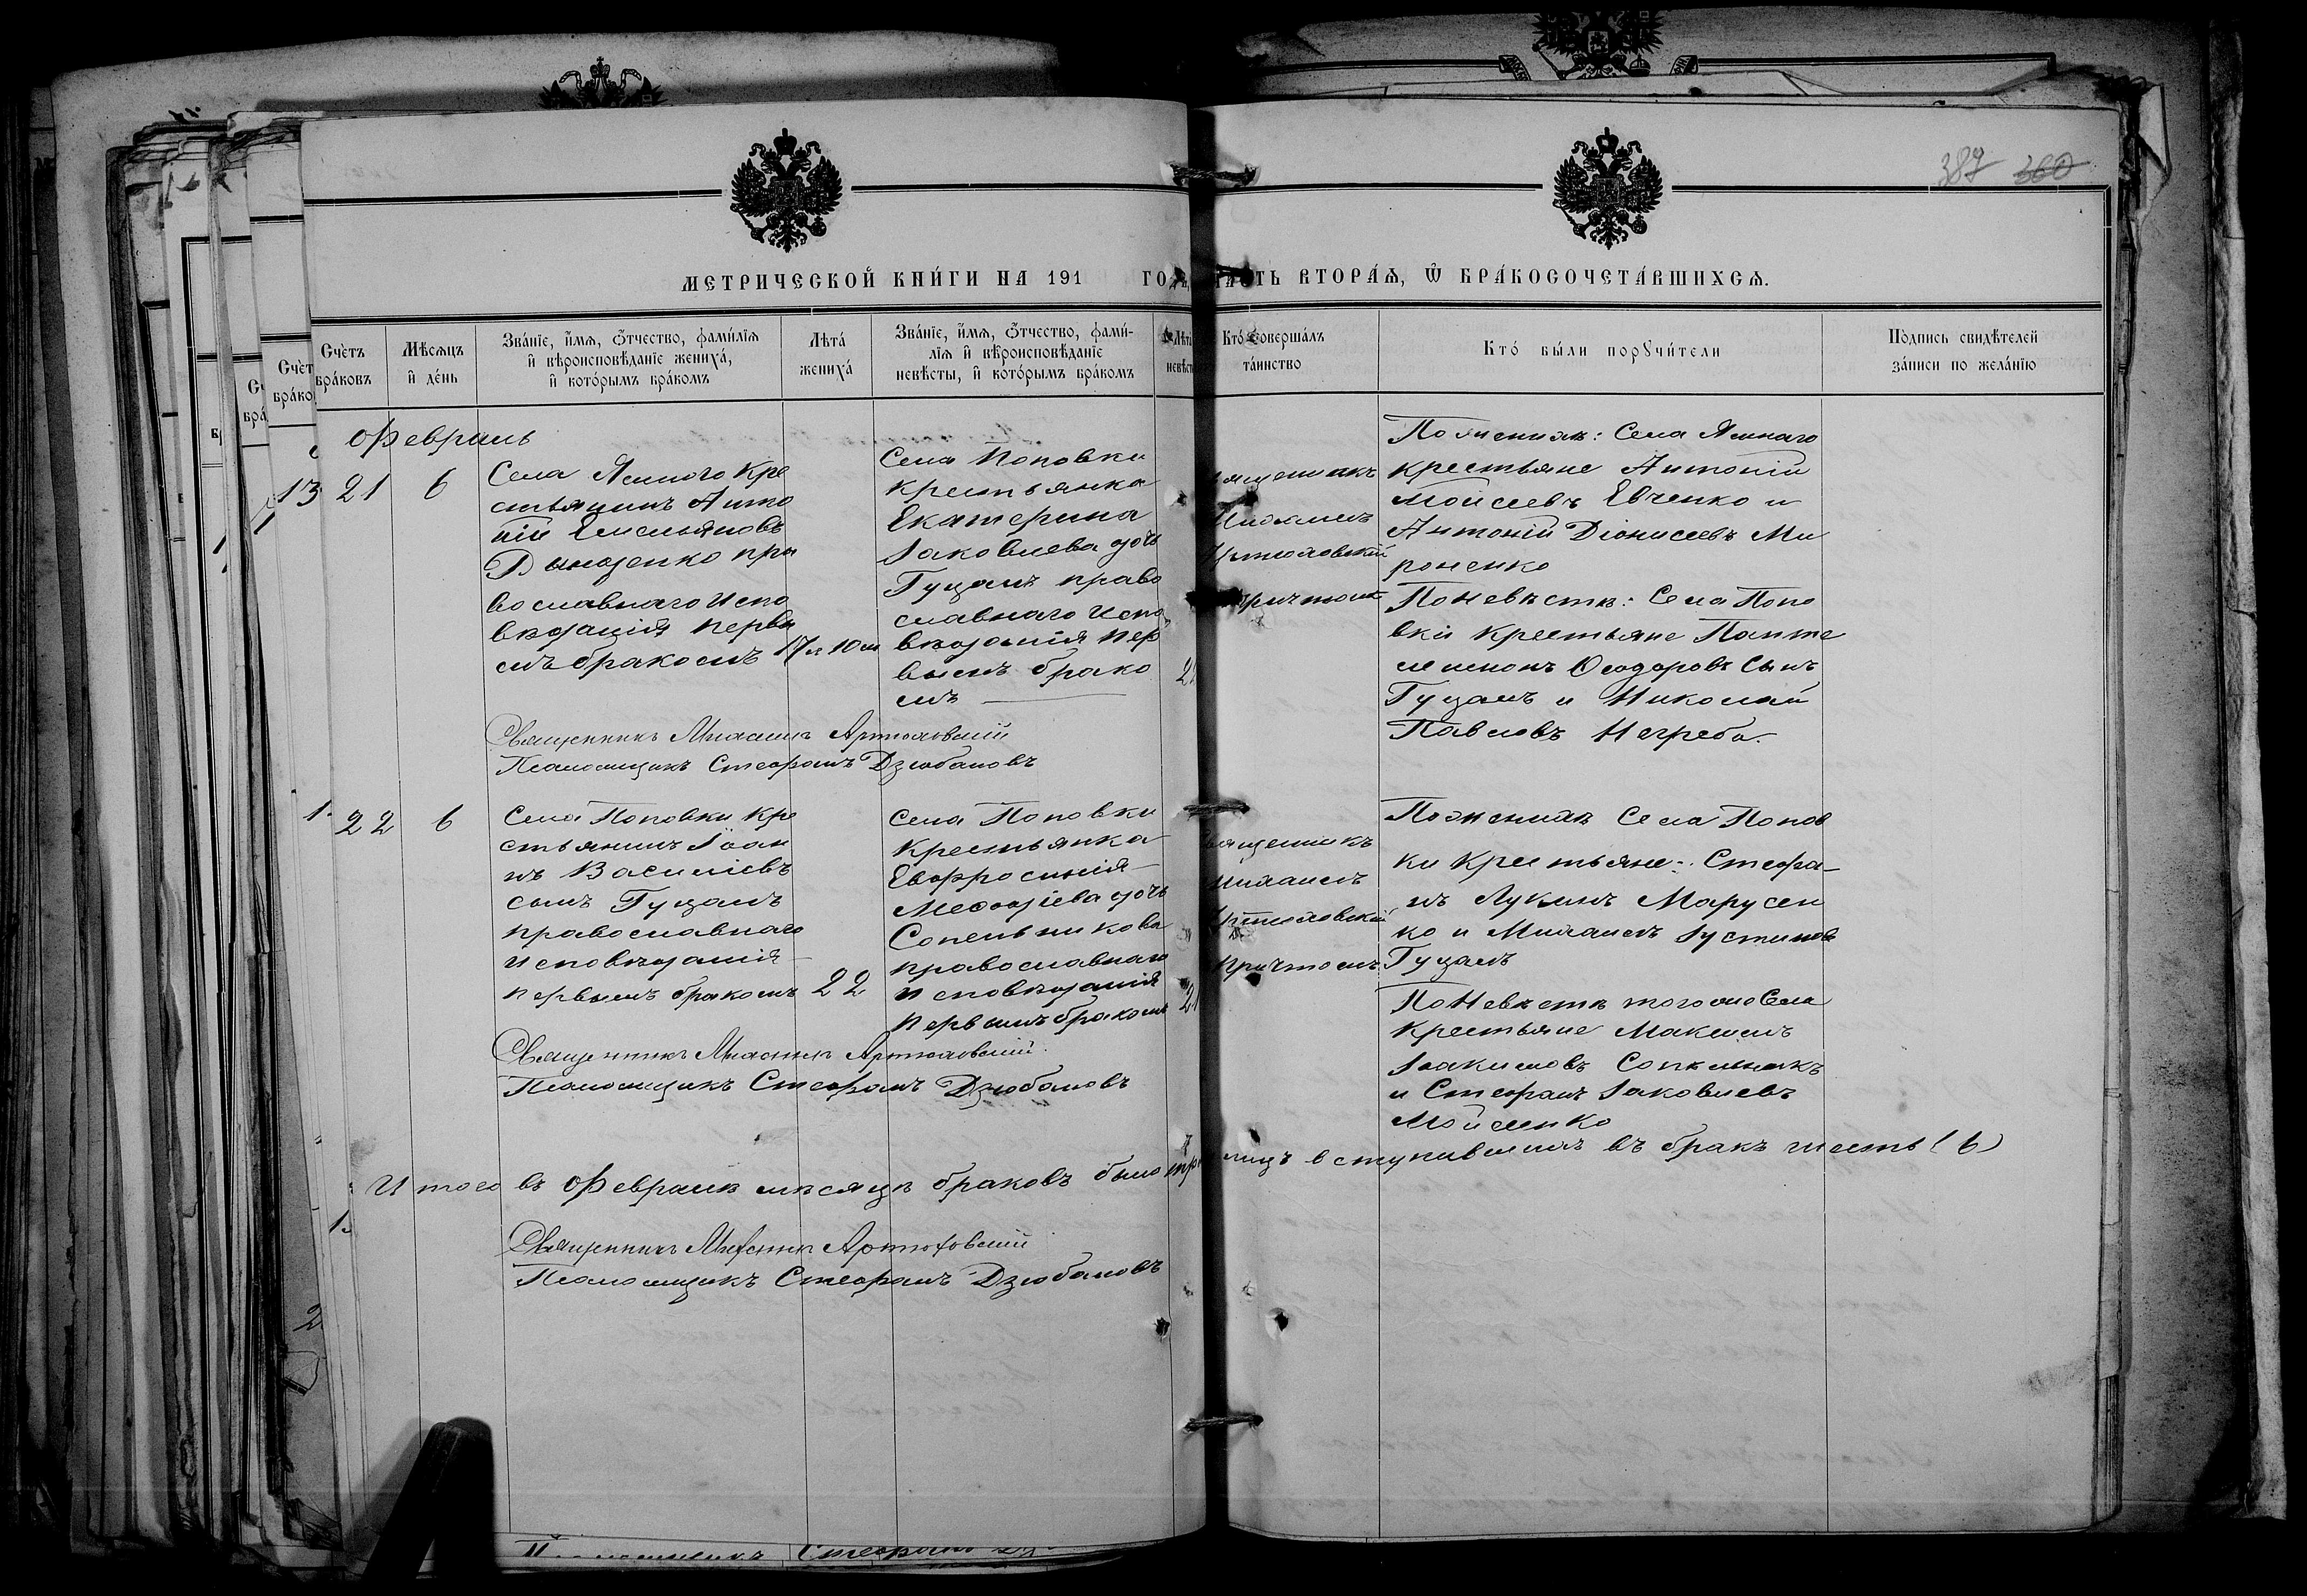 387 360
МЕТРИЧЕСКОЙ КНИ́ГИ НА 191 ГОДЪ, ЧАСТЬ ВТОРА́Ѧ, Ѽ БРА́КОСОЧЕТА́ВШИХСѦ.
Счѐтъ бра́ковъ
Мѣ́сѧцъ и҆ де́нь
Зва́нїе, и҆́мѧ, ѻ҆́тчество, фами́лїѧ и҆ вѣроисповѣ́данїе жениха̀, и҆ кото́рымъ бра́комъ
Лѣта̀ жениха̀
Зва́нїе, и҆́мѧ, ѻ҆́тчество, фами́лїѧ и҆ вѣроисповѣ́данїе невѣ́сты, и҆ кото́рымъ бра́комъ
Кто̀ соверша́лъ та́инство
Кто̀ бы́ли порꙋчи́тели
По́дпись свидѣ́телей за́писи по жела́нїю
Февраль
21 6
Села Ясного Кре
стьянинъ Анто
ній Емельяновъ
пра
вославнаго испо
вѣданія первы
мъ бракомъ
17 л 10 м
Села Поповки
крестьянка
Екатерина
Іаковлева дочь
Гуцалъ право
славнаго испо
вѣданія пер
вымъ брако
мъ
Священникъ
Михаилъ
Артюховскій
причтомъ
По женихѣ: Села Яснаго
крестьяне Антоній
Моисеевъ Евченко и
Антоній Діонисіевъ Ми
роненко
По невѣстѣ: Села Попо
вки крестьяне Панте
леимонъ Ѳеодоровъ сынъ
Гуцалъ и Николай
Павловъ Негреба.
Священникъ Михаилъ Артюховскій
Псаломщикъ Стефанъ Дзюбановъ
22 6
Села Поповки Кре
стьянинъ Іоан
нъ Василіевъ
сынъ Гуцалъ
православнаго
исповѣданія
первымъ бракомъ
22
Села Поповки
крестьянка
Евфросинія
Меѳодіева дочь
Сопельникова
православнаго
исповѣданія
первымъ бракомъ
Священникъ
Михаилъ
Артюховскій
причтомъ
По женихѣ Села Попов
ки крестьяне: Стефа-
нъ Лукинъ Марусен
ко и Михаилъ Іустиновъ
Гуцалъ
По невѣстѣ того же Села
крестьяне Максимъ
Іоакимовъ Сопельникъ
и Стефанъ Іаковлевъ
Мойсенко
Священникъ Михаилъ Артюховскій
Псаломщикъ Стефанъ Дзюбановъ
Итого въ Февралѣ мѣсяцѣ браковъ было три лицъ вступившихъ въ бракъ шесть (6)
Священникъ Михаилъ Артюховскій
Псаломщикъ Стефанъ Дзюбановъ